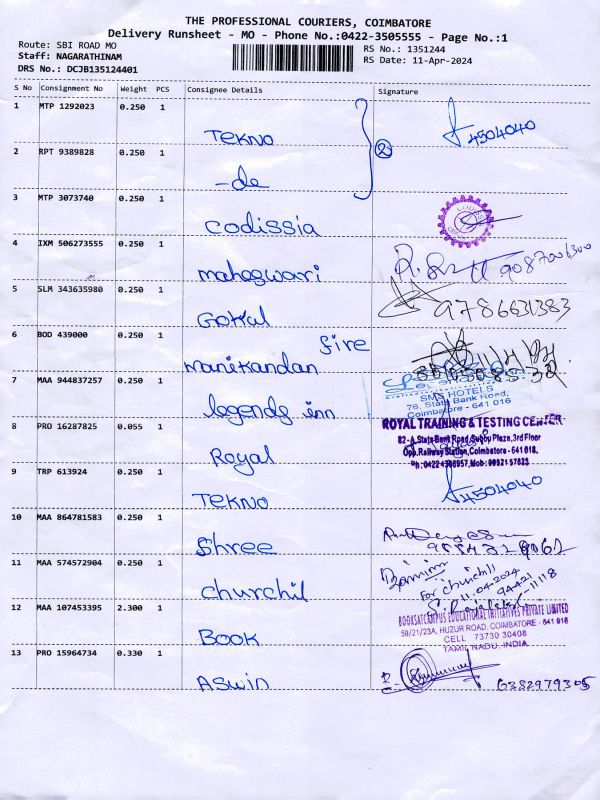 THE PROFESSIONAL COURIERS, COIMBATORE
Delivery Runsheet - MO - Phone No.:0422-3505555 - Page No.:1
Route: SBI ROAD MO
RS No.: 1351244
Staff: NAGARATHINAM
RS Date: 11-Apr-2024
DRS No.: DCJB135124401
S No Consignment No Weight PCS Consignee Details Signature
1 MTP 1292023 0.250 1
TEKNO 4504040
2 RPT 9389828 0.250 1
②
-de
3 MTP 3073740 0.250 1
Codissia
4 IXM 506273555 0.250 1
maheswari
5 SLM 343635980 0.250 1
9786631383
Gokul
6 BOD 439000 0.250 1
fire
Manikandan
7 MAA 944837257 0.250 1
SMS HOTELS
76, State Bank Road,
Coimbatore - 641 018
legends inn
8 PRO 16287825 0.055 1
ROYAL TRAINING & TESTING CENTER
82-A, State Bank Road, Subby Plaza, 3rd Floor
Opp. Railway Station, Coimbatore - 641 018.
Royal
9 TRP 613924 0.250 1
TEKNO 4504040
10 MAA 864781583 0.250 1
Shree
11 MAA 574572904 0.250 1
For Churchil
11.04.2024
Churchil
12 MAA 107453395 2.300 1
BOOKSATCAMPUS EDUCATIONAL INITIATIVES PRIVATE LIMITED
59/21/23A, HUZUR ROAD, COIMBATORE - 641 018
CELL 73730 30408
TAMIL NADU, INDIA.
Book
13 PRO 15964734 0.330 1
Aswin 6382979305